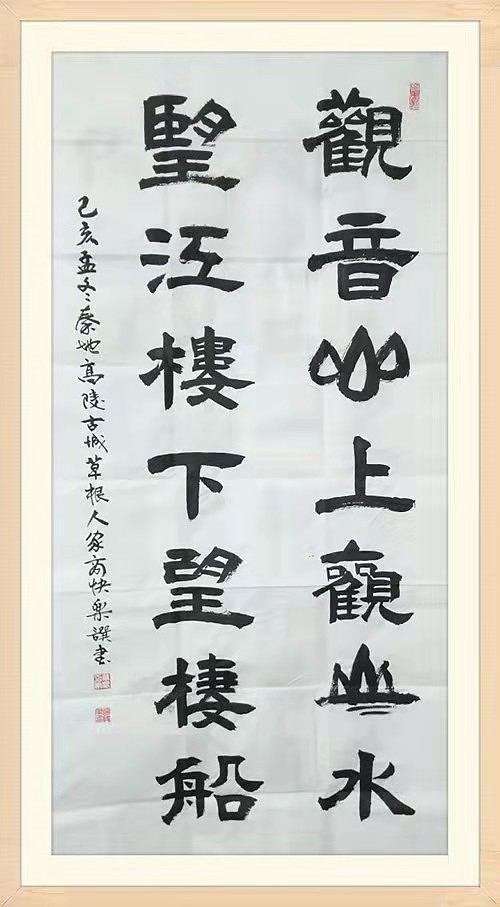 觀音山上觀山水
望江樓下望樓船
己亥孟冬秦地高陵古城草根人家商快樂譔書